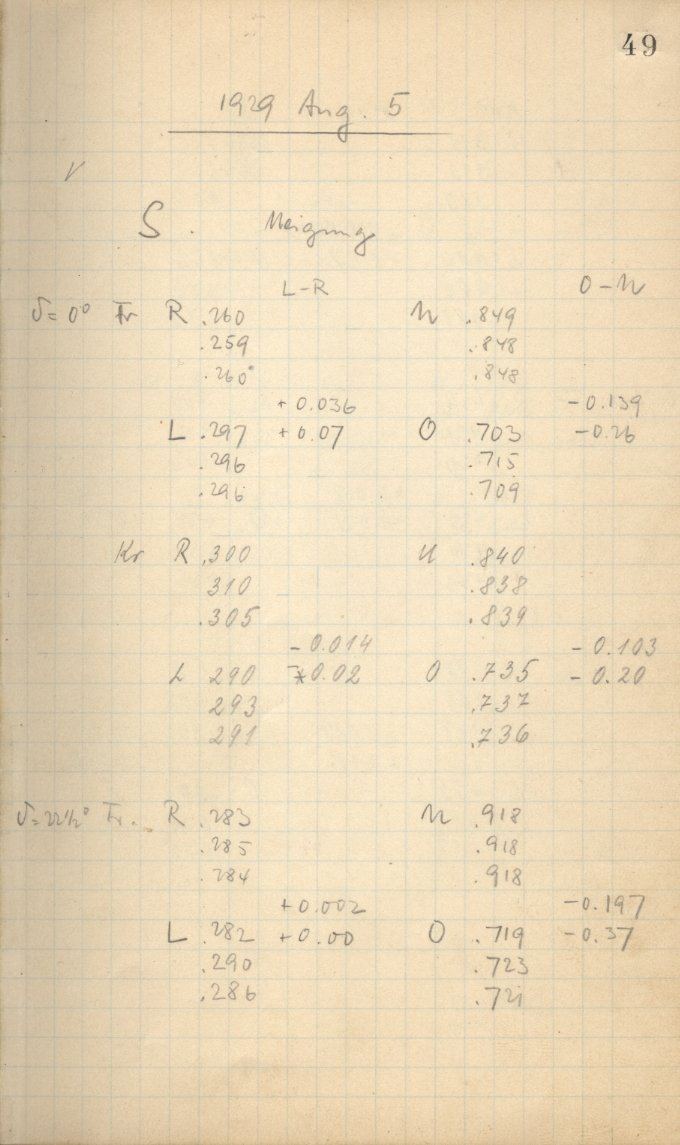 49
1929 Aug. 5
V
S. Neigung
L-R O-U
δ=0° Fr R .260 U .849
.259 .848
.260 .848
+0.036 -0.139
L .297 +0.07 O .703 -0.26
.296 .715
.296 .709
Kr R .300 U .840
310 .838
.305 .839
-0.014 -0.103
L 290 -0.02 O .735 -0.20
293 .737
291 .736
δ=22½° Fr. R .283 U .918
.285 .918
.284 .918
+0.002 -0.197
L .282 +0.00 O .719 -0.37
.290 .723
.286 .721